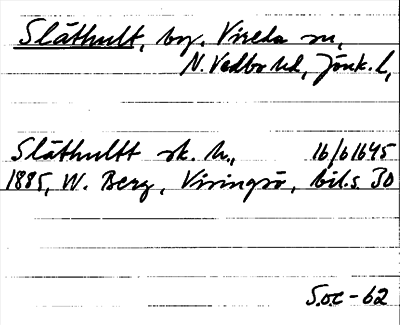 Slåthult, by. Vireda sn,
N. Vedbo hd, Jönk. l,
Slåthultt sk. h., 16/6 1645
1885, W. Berg, Visingsö, bil.s. 30
S.o.c-62